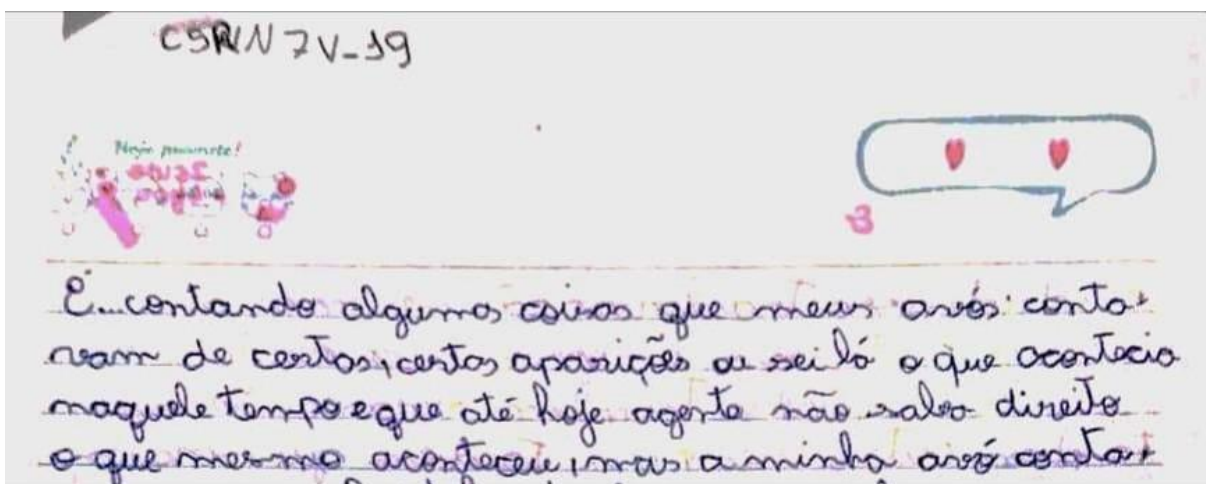 CSRNN7V-19
É...contando algumas coisas que meus avós conta-
vam de certas, certas aparições ou sei lá o que acontecia
naquele tempo e que até hoje agente não sabe direito
o que mesmo aconteceu, mas a minha avó conta-